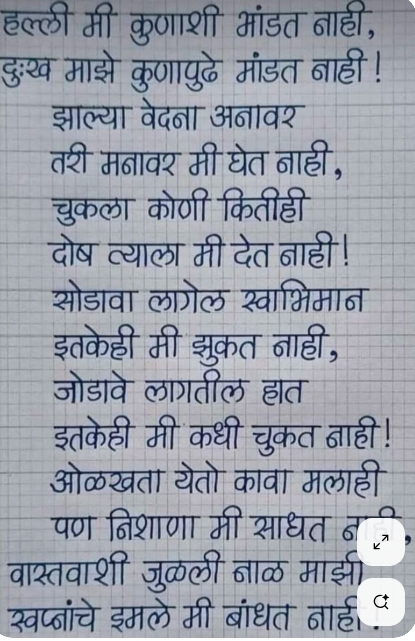 हल्ली मी कुणाशी भांडत नाही,
दुःख माझे कुणापुढे मांडत नाही!
झाल्या वेदना अनावर
तरी मनावर मी घेत नाही,
चुकला कोणी कितीही
दोष त्याला मी देत नाही!
सोडावा लागेल स्वाभिमान
इतकेही मी झुकत नाही,
जोडावे लागतील हात
इतकेही मी कधी चुकत नाही!
ओळखता येतो कावा मलाही
पण निशाणा मी साधत नाही,
वास्तवाशी जुळली नाळ माझी
स्वप्नांचे इमले मी बांधत नाही!